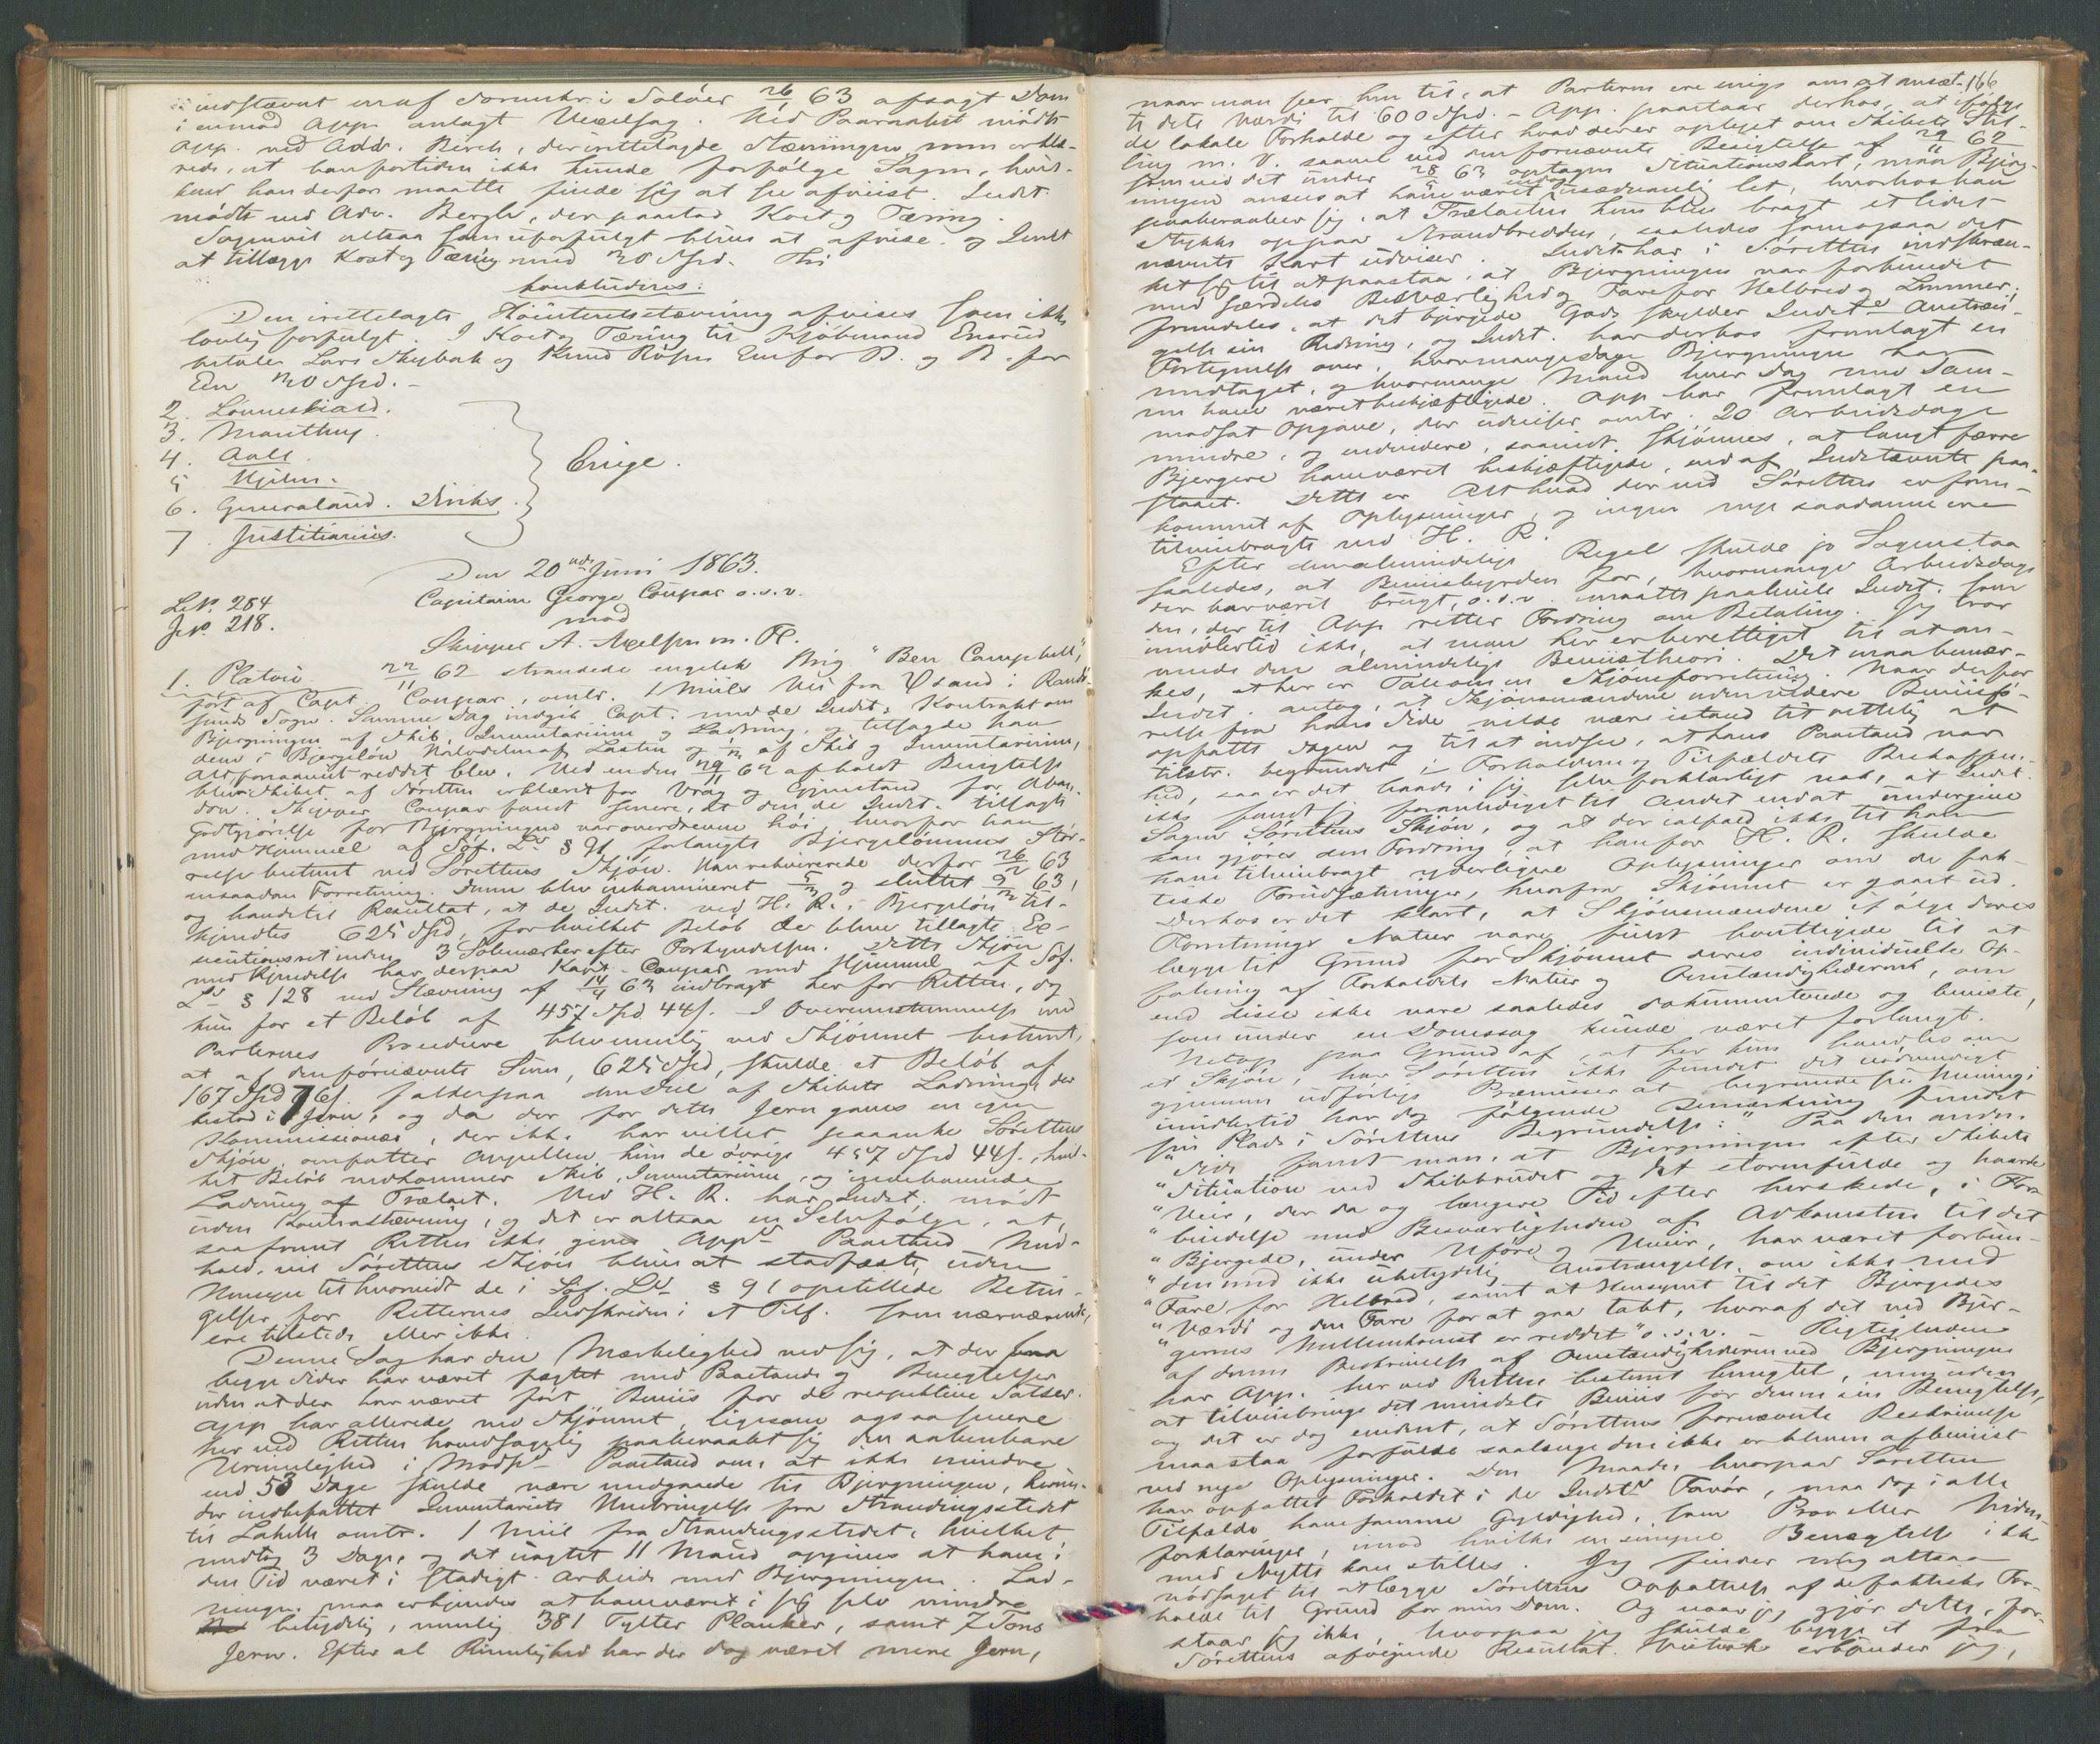 indstævnt en af Sorenskr. i Solöer 26/1 63 afsagt Dom
i en mod App. anlagt Vexelsag. Ved Paaraabet mödte
App. ved Adv. Birch, der irettelagde Stævningen, men erklæ-
rede, at han fortiden ikke kunde forfölge Sagen, hvis-
aarsag han derfor maatte finde sig at see afviist. Indst.
mödte ved Adv. Bergh, der paastod Kost og Tæring.
Sagen vil altsaa som uforfulgt blive at afvise, og Indst.
at tillægge Kost og Tæring med 20 Spd. Thi
konkluderes:
Den irettelagte Höiesteretsstævning afvises som ikke
lovlig forfulgt. I Kost og Tæring til Kjöbmand Enerud
betaler Lars Skybak og Knud Röhne Een for B. og B. for
Een 20 Spd. -
2. Lönneskiold.
3. Manthey.
4. Aall
5. Hjelm.
6. Generalaud. Dirks.
7. Justitiarius.
Enige.
Den 20de Juni 1863.
L.N. 284
J.N. 218.
Capitain George Coupar o.s.v.
mod
Skipper A. Axelsen m. Fl.
1. Platou. 22/11 62 strandede engelsk Brig "Ben Campbell",
fört af Capt. Coupar, omtr. 1 Miils Vei fra Ösand i Rand-
sunds Sogn. Samme Dag indgik Capt. med de Indst. Kontrakt om
Bjergningen af Skib, Inventarium og Ladning, og tilsagde han
dem i Bjergelön Halvdelen af Lasten og 1/2 af Skib og Inventarium,
Alt forsaavidt reddet blev. Ved en den 29/11 62 afholdt Besigtelse
blev Skibet af Söretten erklæret for Vrag og Gjenstand for Aban-
don. Skipper Coupar fandt senere, at den de Indst. tilsagte
Godtgjörelse for Bjergningen var overdreven höi, hvorfor han
med Hjemmel af Söf. Lov § 91 forlangte Bjergelönnens Stör-
relse bestemt ved Sörettens Skjön. Han rekvirerede derfor 26/2 63
en saadan Forretning. Denne blev inkamineret 5/3 og sluttet 9/3 63,
og havde til Resultat, at de Indst. ved H. R. i Bjergelön til-
kjendtes 625 Spd, for hvilket Belöb der blev tillagt Ex-
ecutionsret inden 3 Solemærker efter Forkyndelsen. Dette Skjön
med Kjendelse har derpaa Kapt. Coupar med Hjemmel af Söf.
Lov § 128 ved Stævning af 14/4 63 indbragt her for Retten, dog
kun for et Belöb af 457 Spd 44 s. I Overeensstemmelse med
Parternes Procedure blev nemlig ved Skjönnet bestemt,
at af den fornævnte Sum, 625 Spd, skulde et Belöb af
167 Spd 76 s. falde paa den Deel af Skibets Ladning, der
bestod i Jern, og da der for dette Jern gaves en egen
Kommissionær, der ikke har villet paaanke Sörettens
Skjön, omfatter Appellen kun de övrige 457 Spd 44 s., hvil-
ket Belöb vedkommer Skib, Inventarium, og indehavende
Ladning af Trælast. Ved H. R. har Indst. mödt
uden Kontrastævning, og det er altsaa en Selvfölge, at,
saafremt Retten ikke giver App.s Paastand Med-
hold, vil Sörettens Skjön blive at stadfæste, uden
Hensyn til hvorvidt de i Söf. Lov § 91 opstillede Betin-
gelser for Retternes Indskriden i et Tilf. som nærværende,
ere tilstede eller ikke.
Denne Sag har den Mærkelighed ved sig, at der fra
begge Sider har været fægtet med Paastande og Benegtelser
uden at der har været fört Beviis for de respektive Satser.
App. har allerede ved Skjönnet, ligesom ogsaa senere
her ved Retten hovedsagelig paaberaabt sig den aabenbare
Urimelighed i Modp.s Paastand om, at ikke mindre
end 53 Dage skulde være medgaaede til Bjergningen, herun-
der indbefattet Inventariets Henbringelse fra Strandingsstedet
til Lahelle omtr. 1 Miil fra Strandingsstedet, hvilket
medtog 3 Dage, og det uagtet 11 Mand opgives at have i
den Tid været i stadigt Arbeide med Bjergningen. Lad-
ningen maa erkjendes at have været i sig selv mindre
betydelig, nemlig 381 Tylter Planker, samt 7 Tons
Jern. Efter al Rimelighed har der dog været mere Jern,
166
naar man seer hen til, at Parterne ere enige om at ansæt-
te dets Værdi til 600 Spd. - App. paastaar derhos, at ifölge
de lokale Forholde og efter hvad der er oplyst om Skibets Stil-
ling m. V. saavel ved den fornævnte Besigtelse af 29/11 62
som ved det under 28/2 63 optagne Situationskart, maa Bjerg-
ningen ansees at have været endog usædvanlig let, hvorhos han
paaberaaber sig, at Trælasten kun blev bragt et lidet
Stykke oppaa Strandbredden, saaledes som ogsaa det
nævnte Kart udviser. Indst. har i Söretten indskræn-
ket sig til at paastaa, at Bjergningen var forbundet
med særdeles Besværlighed og Fare for Helbred og Lemmer;
fremdeles, at det bjergede Gods skylder Indst.s Anstræn-
gelse sin Redning, og Indst. har derhos fremlagt en
Fortegnelse over, hvormange Dage Bjergningen har
medtaget, og hvormange Mand hver Dag med Sam-
me have været beskjæftigede. App. har fremlagt en
modsat Opgave, der udviser omtr. 20 Arbeidsdage
mindre, og endvidere, saavidt skjönnes, at langt færre
Bjergere have været beskjæftigede, end af Indstævnte paa-
staaet. Dette er Alt hvad der ved Söretten er frem-
kommet af Oplysninger, og ingen nye saadanne ere
tilveiebragte ved H. R.
Efter den almindelige Regel skulde jo Sagen staa
saaledes, at Beviisbyrden for, hvormange Arbeidsdage
der har været brugt, o.s.v. maatte paahvile Indst. som
den, der til App. retter Fordring om Betaling. Jeg tror
imidlertid ikke, at man her er berettiget til at an-
vende den almindelige Beviistheori. Det maa bemær-
kes, at her er Tale om en Skjönsforretning. Naar derfor
Indst. antog, at Skjönsmændene uden videre Beviis-
relse fra hans Side vilde være istand til rettelig at
opfatte Sagen og til at indsee, at hans Paastand var
tilstr. begrundet i Forholdene og Tilfældets Beskaffen-
hed, saa er det baade i sig selv forklarligt nok, at Indst.
ikke fandt sig foranlediget til Andet end at undergive
Sagen Sörettens Skjön, og at der ialfald ikke til ham
kan gjöres den Fordring, at han for H. R. skulde
have tilveiebragt yderligere Oplysninger om de fak-
tiske Forudsætninger, hvorfra Skjönnet er gaaet ud.
Derhos er det klart, at Skjönsmændene ifölge deres
Forretnings Natur vare fuldt beretttigede til at
lægge til Grund for Skjönnet deres individuelle Op-
fatning af Forholdets Natur og Omstændighederne, om
end disse ikke vare saaledes dokumenterede og beviste,
som under en Domssag kunde været forlangt.
Netop paa Grund af, at her kun handles om
et Skjön, har Söretten ikke fundet det nödvendigt
gjennem udförlige Præmisser at begrunde sin Mening;
imidlertid har dog fölgende Bemærkning fundet
sin Plads i Sörettens Begrundelse: "Paa den anden
"Side fandt man, at Bjergningen efter Skibets
"Situation ved Skibbrudet og det stormfulde og haarde
"Veir, der da og længere Tid efter herskede, i For-
"bindelse med Besværligheden af Adkomsten til det
"Bjergede, under Uföre og Uveir, har været forbun-
"den med ikke ubetydelig Anstrængelse, om ikke med
"Fare for Helbred, samt at Hensynet til det Bjergedes
"Værdi og den Fare for at gaa tabt, hvoraf det ved Bjer-
"gernes Mellemkomst er reddet" o.s.v. - Rigtigheden
af denne Beskrivelse af Omstændighederne ved Bjergningen
har App. her ved Retten bestemt benegtet, men uden
at tilveiebringe det mindste Beviis for denne sin Benegtelse,
og det er dog evident, at Sörettens fornævnte Beskrivelse
maa staa forfulde saalænge den ikke er bleven afbeviist
ved nye Oplysninger. Den Maade, hvorpaa Söretten
har opfattet Forholdet i de Indst.s Favör, maa dog i alle
Tilfælde have samme Gyldighed, som Prov eller Vidne-
forklaringer, imod hvilke en simpel Benægtelse ikke
med Nytte kan stilles. Jeg finder mig altsaa
nödsaget til at lægge Sörettens Opfattelse af de faktiske For-
holde til Grund for min Dom. Og naar jeg gjör dette, for-
staar jeg ikke, hvorpaa jeg skulde bygge et fra
Sörettens afvigende Resultat. Vistnok erkjender jeg,